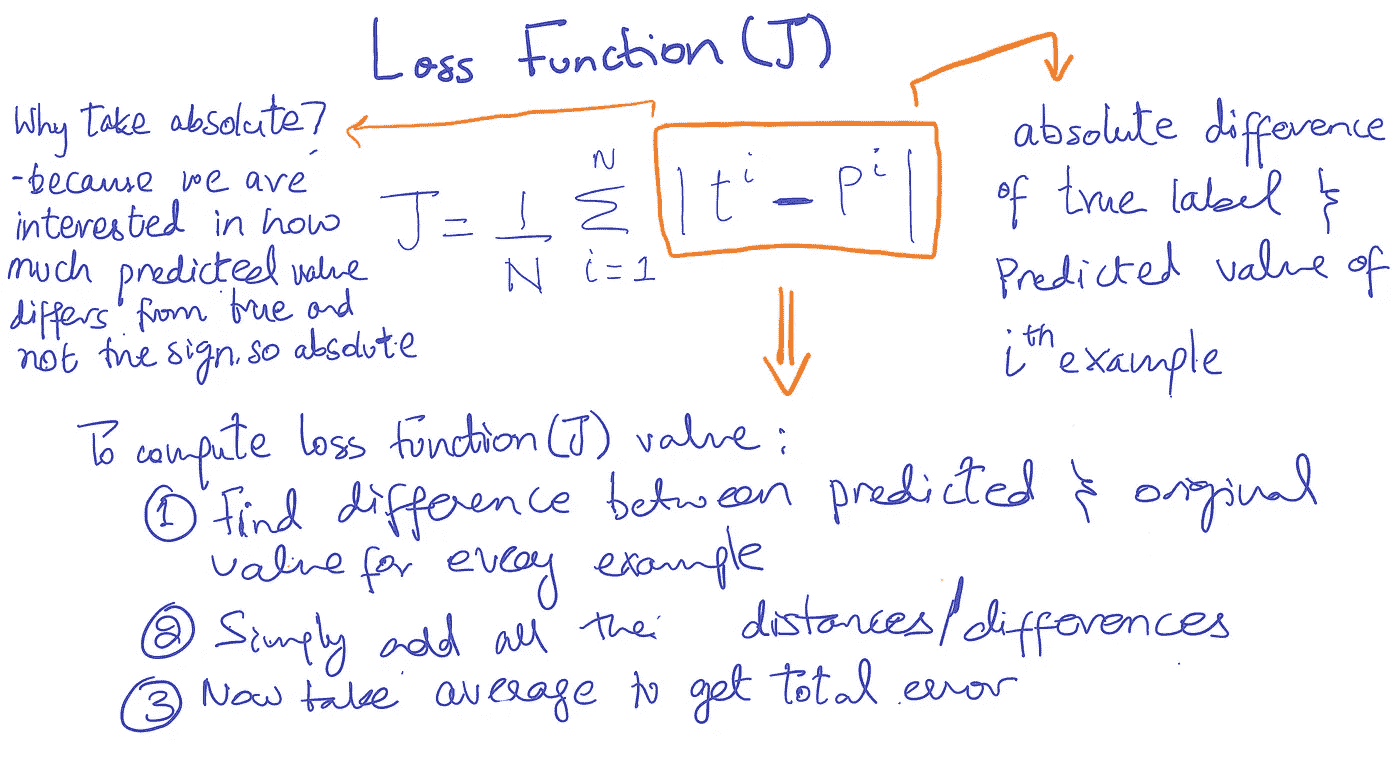 Loss Function (J)
Why take absolute?
-because we are
interested in how
much predicted value
differs from true and
not the sign. so absolute
J = 1/N Σ_{i=1}^{N} |t^i - P^i|
absolute difference
of true label &
Predicted value of
i^th example
To compute loss function (J) value:
① Find difference between predicted & original
value for every example
② Simply add all the distances/differences
③ Now take average to get total error